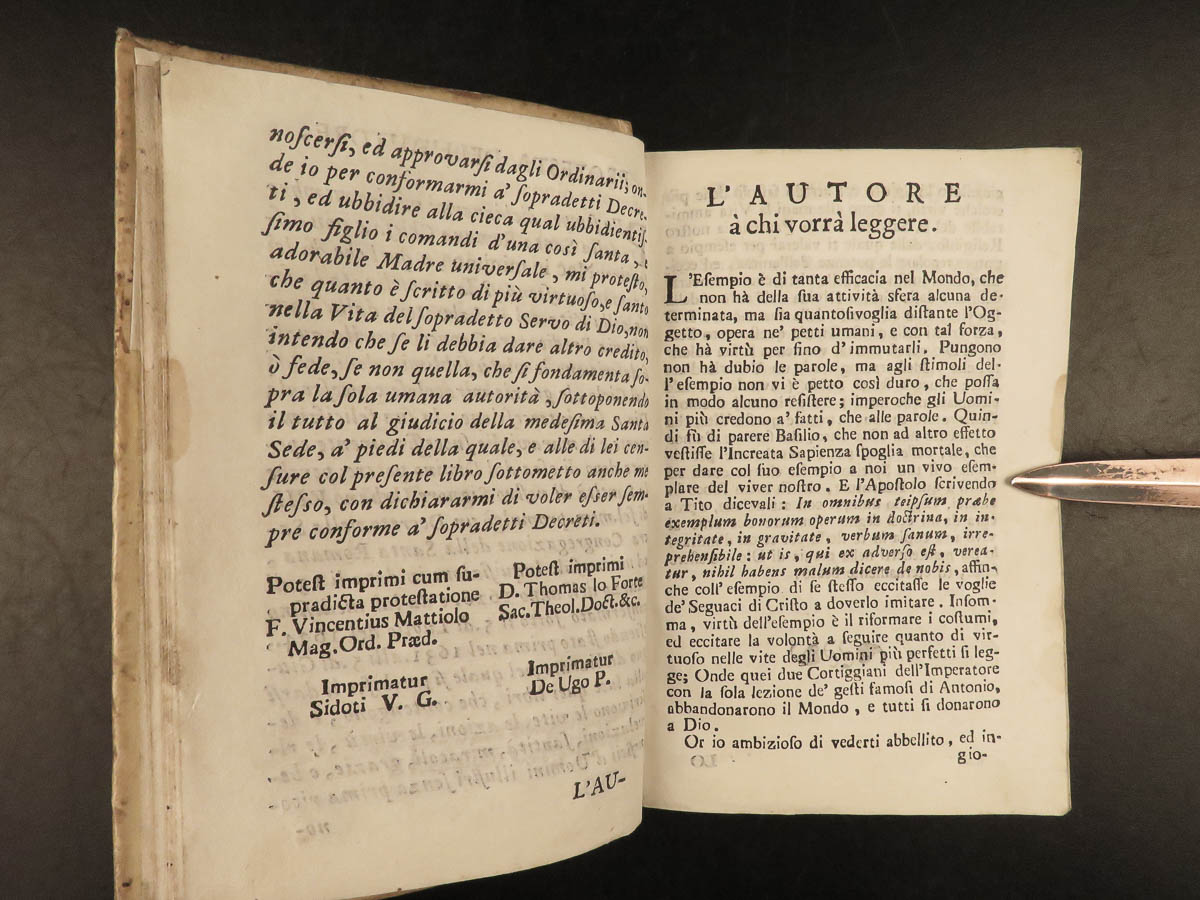 noſcerſi, ed approvarſi dagli Ordinarii; on-
de io per conformarmi a' ſopradetti Decre-
ti, ed ubbidire alla cieca qual ubbidientiſ-
ſimo figlio i comandi d'una così ſanta, e
adorabile Madre univerſale, mi proteſto,
che quanto è ſcritto di più virtuoſo, e ſanto
nella Vita del ſopradetto Servo di Dio, non
intendo che ſe li debbia dare altro credito,
ò fede, ſe non quella, che ſi fondamenta ſo-
pra la ſola umana autorità, ſottoponendo
il tutto al giudicio della medeſima Santa
Sede, a' piedi della quale, e alle di lei cen-
ſure col preſente libro ſottometto anche me
ſteſſo, con dichiararmi di voler eſſer ſem-
pre conforme a' ſopradetti Decreti.
Poteſt imprimi cum ſu-
pradicta proteſtatione
F. Vincentius Mattiolo
Mag. Ord. Præd.
Poteſt imprimi
D. Thomas lo Forte
Sac. Theol. Doct. &c.
Imprimatur
Sidoti V. G.
Imprimatur
De Ugo P.
L'AU-
L'AUTORE
à chi vorrà leggere.
L'Eſempio è di tanta efficacia nel Mondo, che
non hà della ſua attività sfera alcuna de-
terminata, ma ſia quantoſivoglia diſtante l'Og-
getto, opera ne' petti umani, e con tal forza,
che hà virtù per fino d'immutarli. Pungono
non hà dubio le parole, ma agli ſtimoli del-
l'eſempio non vi è petto così duro, che poſſa
in modo alcuno reſiſtere; imperoche gli Uomi-
ni più credono a' fatti, che alle parole. Quin-
di fù di parere Baſilio, che non ad altro effetto
veſtiſſe l'Increata Sapienza ſpoglia mortale, che
per dare col ſuo eſempio a noi un vivo eſem-
plare del viver noſtro. E l'Apoſtolo ſcrivendo
a Tito dicevali: In omnibus teipſum præbe
exemplum bonorum operum in doctrina, in in-
tegritate, in gravitate, verbum ſanum, irre-
prehenſibile: ut is, qui ex adverſo eſt, verea-
tur, nihil habens malum dicere de nobis, affin-
che coll' eſempio di ſe ſteſſo eccitaſſe le voglie
de' Seguaci di Criſto a doverlo imitare. Inſom-
ma, virtù dell'eſempio è il riformare i coſtumi,
ed eccitare la volontà a ſeguire quanto di vir-
tuoſo nelle vite degli Uomini più perfetti ſi leg-
ge; Onde quei due Cortiggiani dell'Imperatore
con la ſola lezione de' geſti famoſi di Antonio,
abbandonarono il Mondo, e tutti ſi donarono
a Dio.
Or io ambizioſo di vederti abbellito, ed in-
gio-